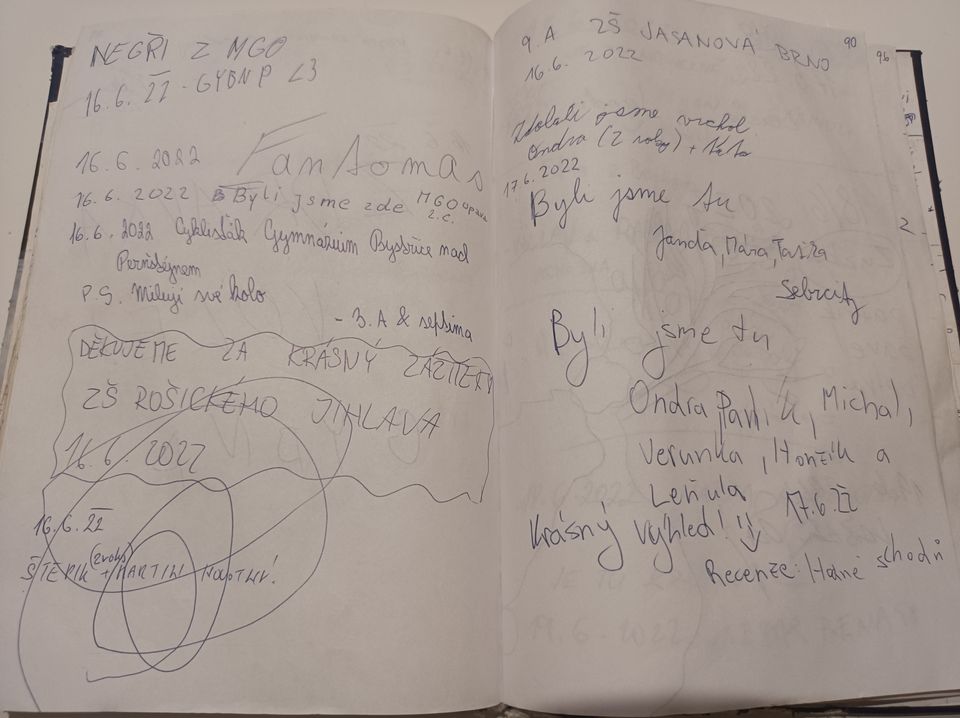 NEGŘI Z MGO
16.6. 22 - GYBNP <3
16.6.2022 Fantomas
16.6.2022 Byli jsme zde MGO opava
2.C.
16.6. 2022 Cyklisťák Gymnázium Bystřice nad
Pernštejnem
P.S. Miluji své kolo
- 3.A & septima
DĚKUJEME ZA KRÁSNÝ ZÁŽITEK
ZŠ ROŠICKÉHO JIHLAVA
16.6. 2022
16.6.22
ŠTĚPIK (2roky) + MARTIN NOVOTNÝ!
9.A ZŠ JASANOVÁ BRNO
90
96
16.6. 2022
Zdolali jsme vrchol
Ondra (2 roky) +
17.6.2022
Byli jsme tu
Janďa, Mára,
Byli jsme tu
Ondra, Pavlík, Michal,
Verunka, Honzík a
Leňula 17.6.22
Krásný výhled! :)
Recenze: Hodně schodů
2